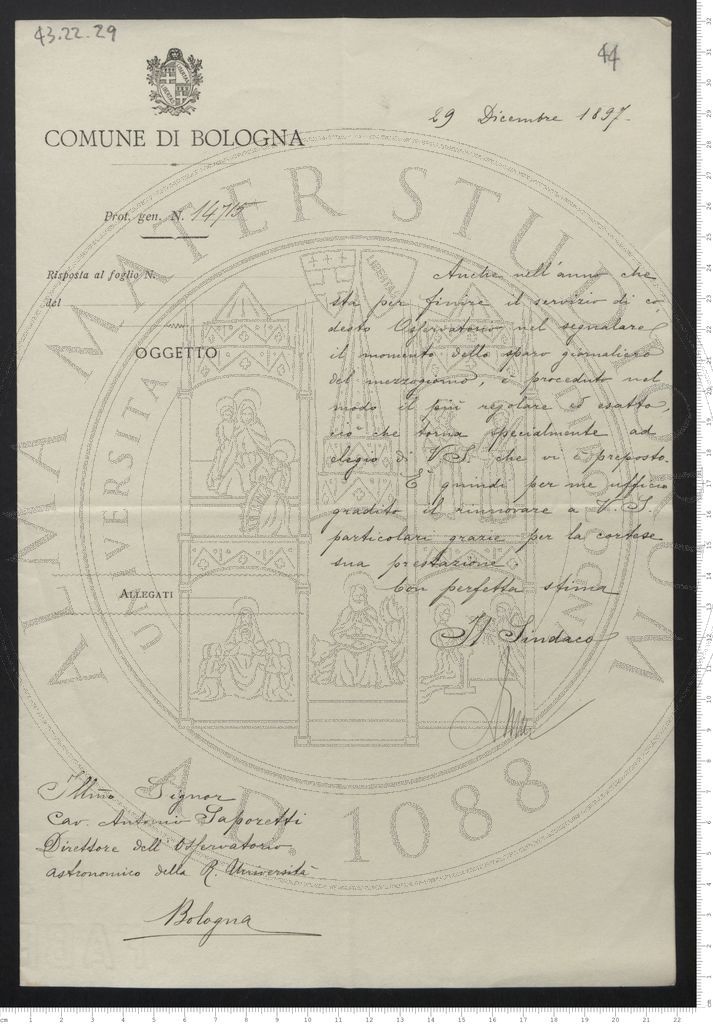 43.22.29
44
LIBERTAS
COMUNE DI BOLOGNA
29 Dicembre 1897.
Prot. gen. N. 14715
Risposta al foglio N.
del
OGGETTO
Anche nell'anno che
sta per finire il servizio di co
desto Osservatorio nel segnalare
il momento dello sparo giornaliero
del mezzogiorno, è proceduto nel
modo il più regolare ed esatto,
ciò che torna specialmente ad
elogio di V.S. che vi è preposto.
È quindi per me ufficio
gradito il rinnovare a V.S.
particolari grazie per la cortese
sua prestazione
Con perfetta stima
Il Sindaco
ALLEGATI
Illmo Signor
Cav. Antonio Saporetti
Direttore dell'Osservatorio
astronomico della R. Università
Bologna
ALMA MATER STUDIORUM
UNIVERSITÀ DI BOLOGNA
A.D. 1088